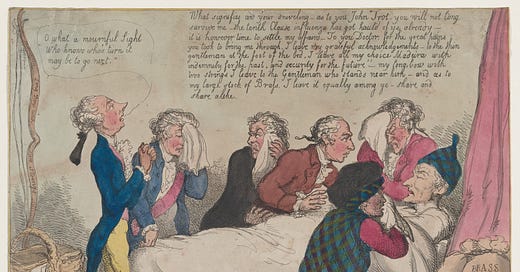 O what a mournful sight
Who knows who's turn it
may be to go next."
What signefies all your sniveling as to you John Frot, you will not long
survive me the tenth Clause Influenza has got hold of ye already
it is however time to settle my affairs To you Doctor for the great pains
you took to bring me through I leave my grateful acknowledgments to the thin
gentleman at the foot of the bed. I leave all my choice Madeira with
indemnity for the past, and security for the future my long bow with
two strings I leave to the Gentleman who stands near him and as to
my large stock of Brass, I leave it equally among ye share and
share alike.
BRASS